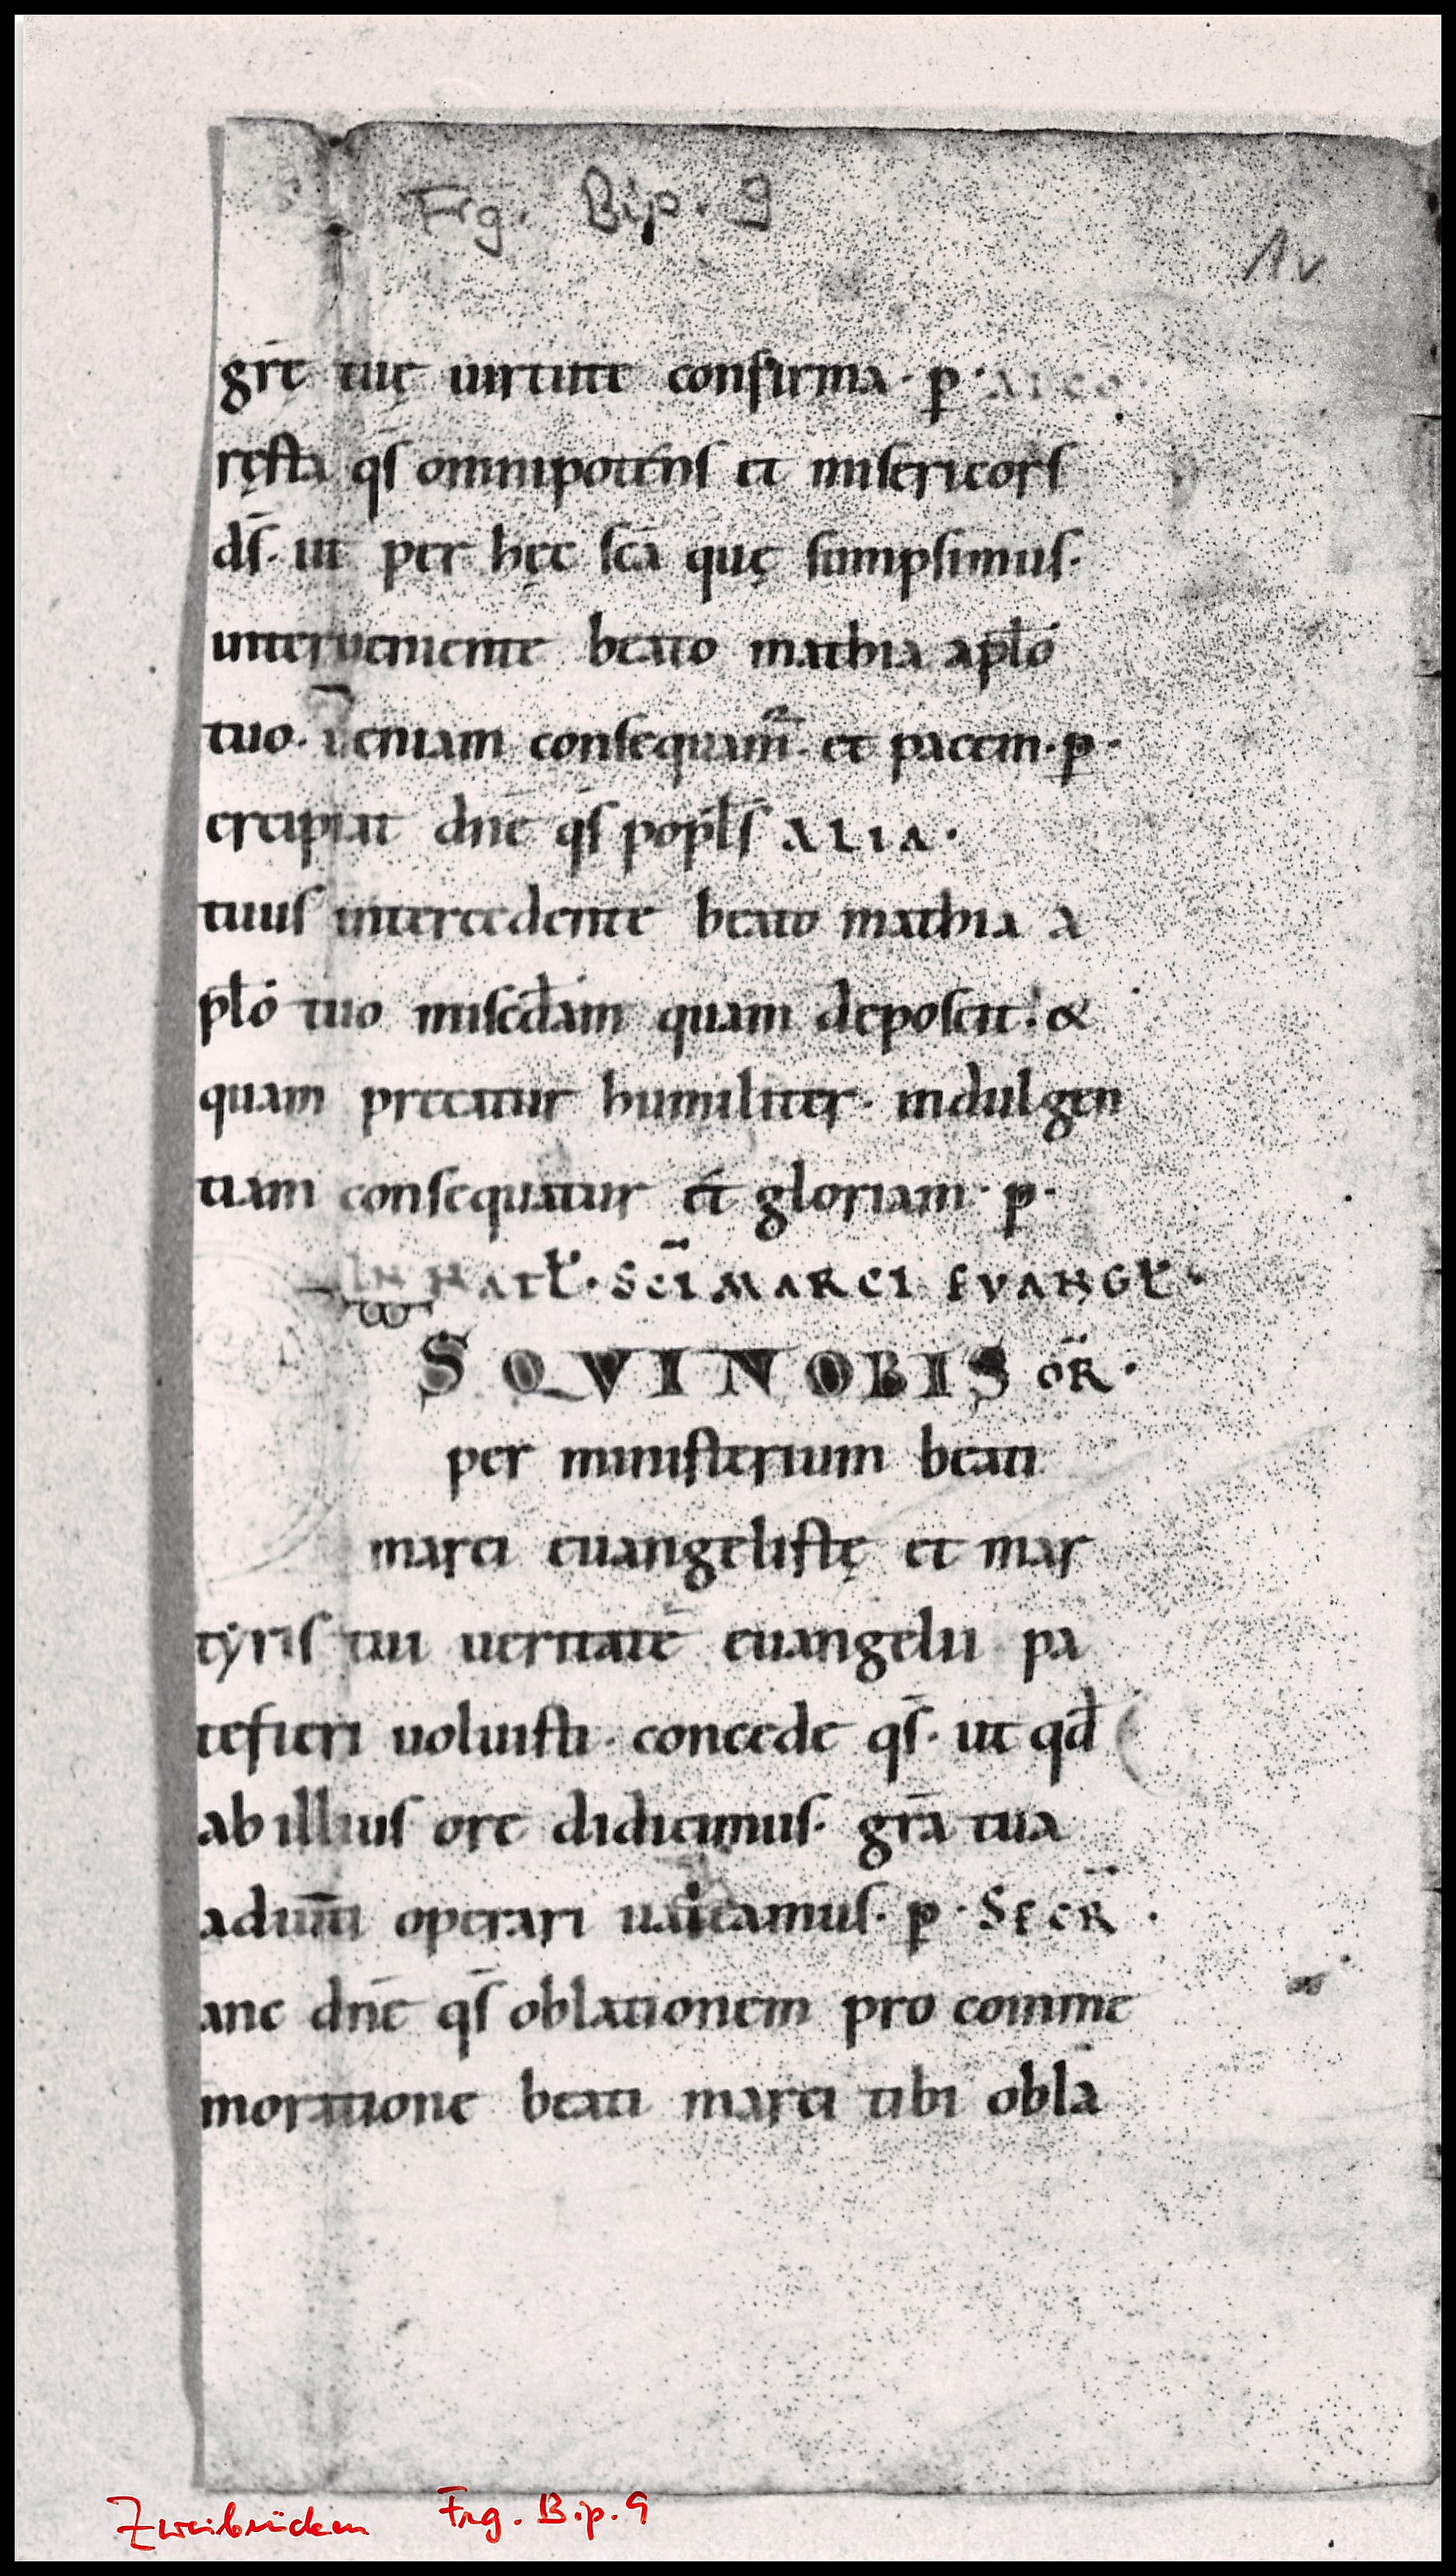 Frg. Bip. 9
1v
gr̄e tuę uirtute confirma · p̱ ·
ręsta qs̄ omnipotens et misericors
ds̄ · ut per hęc sc̄a quę sumpsimus ·
interueniente beato mathia apl̄o
tuo · ueniam consequam̄ · et pacem · p̱ ·
ercipiat dn̄e qs̄ popl̄s ALIA ·
tuus intercedente beato mathia a
pl̄o tuo misc̄dam quam deposcit · &
quam precatur humiliter · indulgen
tiam consequatur et gloriam · p̱ ·
IN NATL̄ · SC̄I MARCI EVANGL̄ ·
S QVI NOBIS OR̄ ·
per ministerium beati
marci euangelistę et mar
tyris tui ueritatē euangelii pa
tefieri uoluisti · concede qs̄ · ut qd̄
ab illius ore didicimus · gr̄a tua
adiuti operari ualeamus · p̱ · SECR̄ ·
anc dn̄e qs̄ oblationem pro comme
moratione beati marci tibi obla
Zweibrücken Frg. B.p. 9